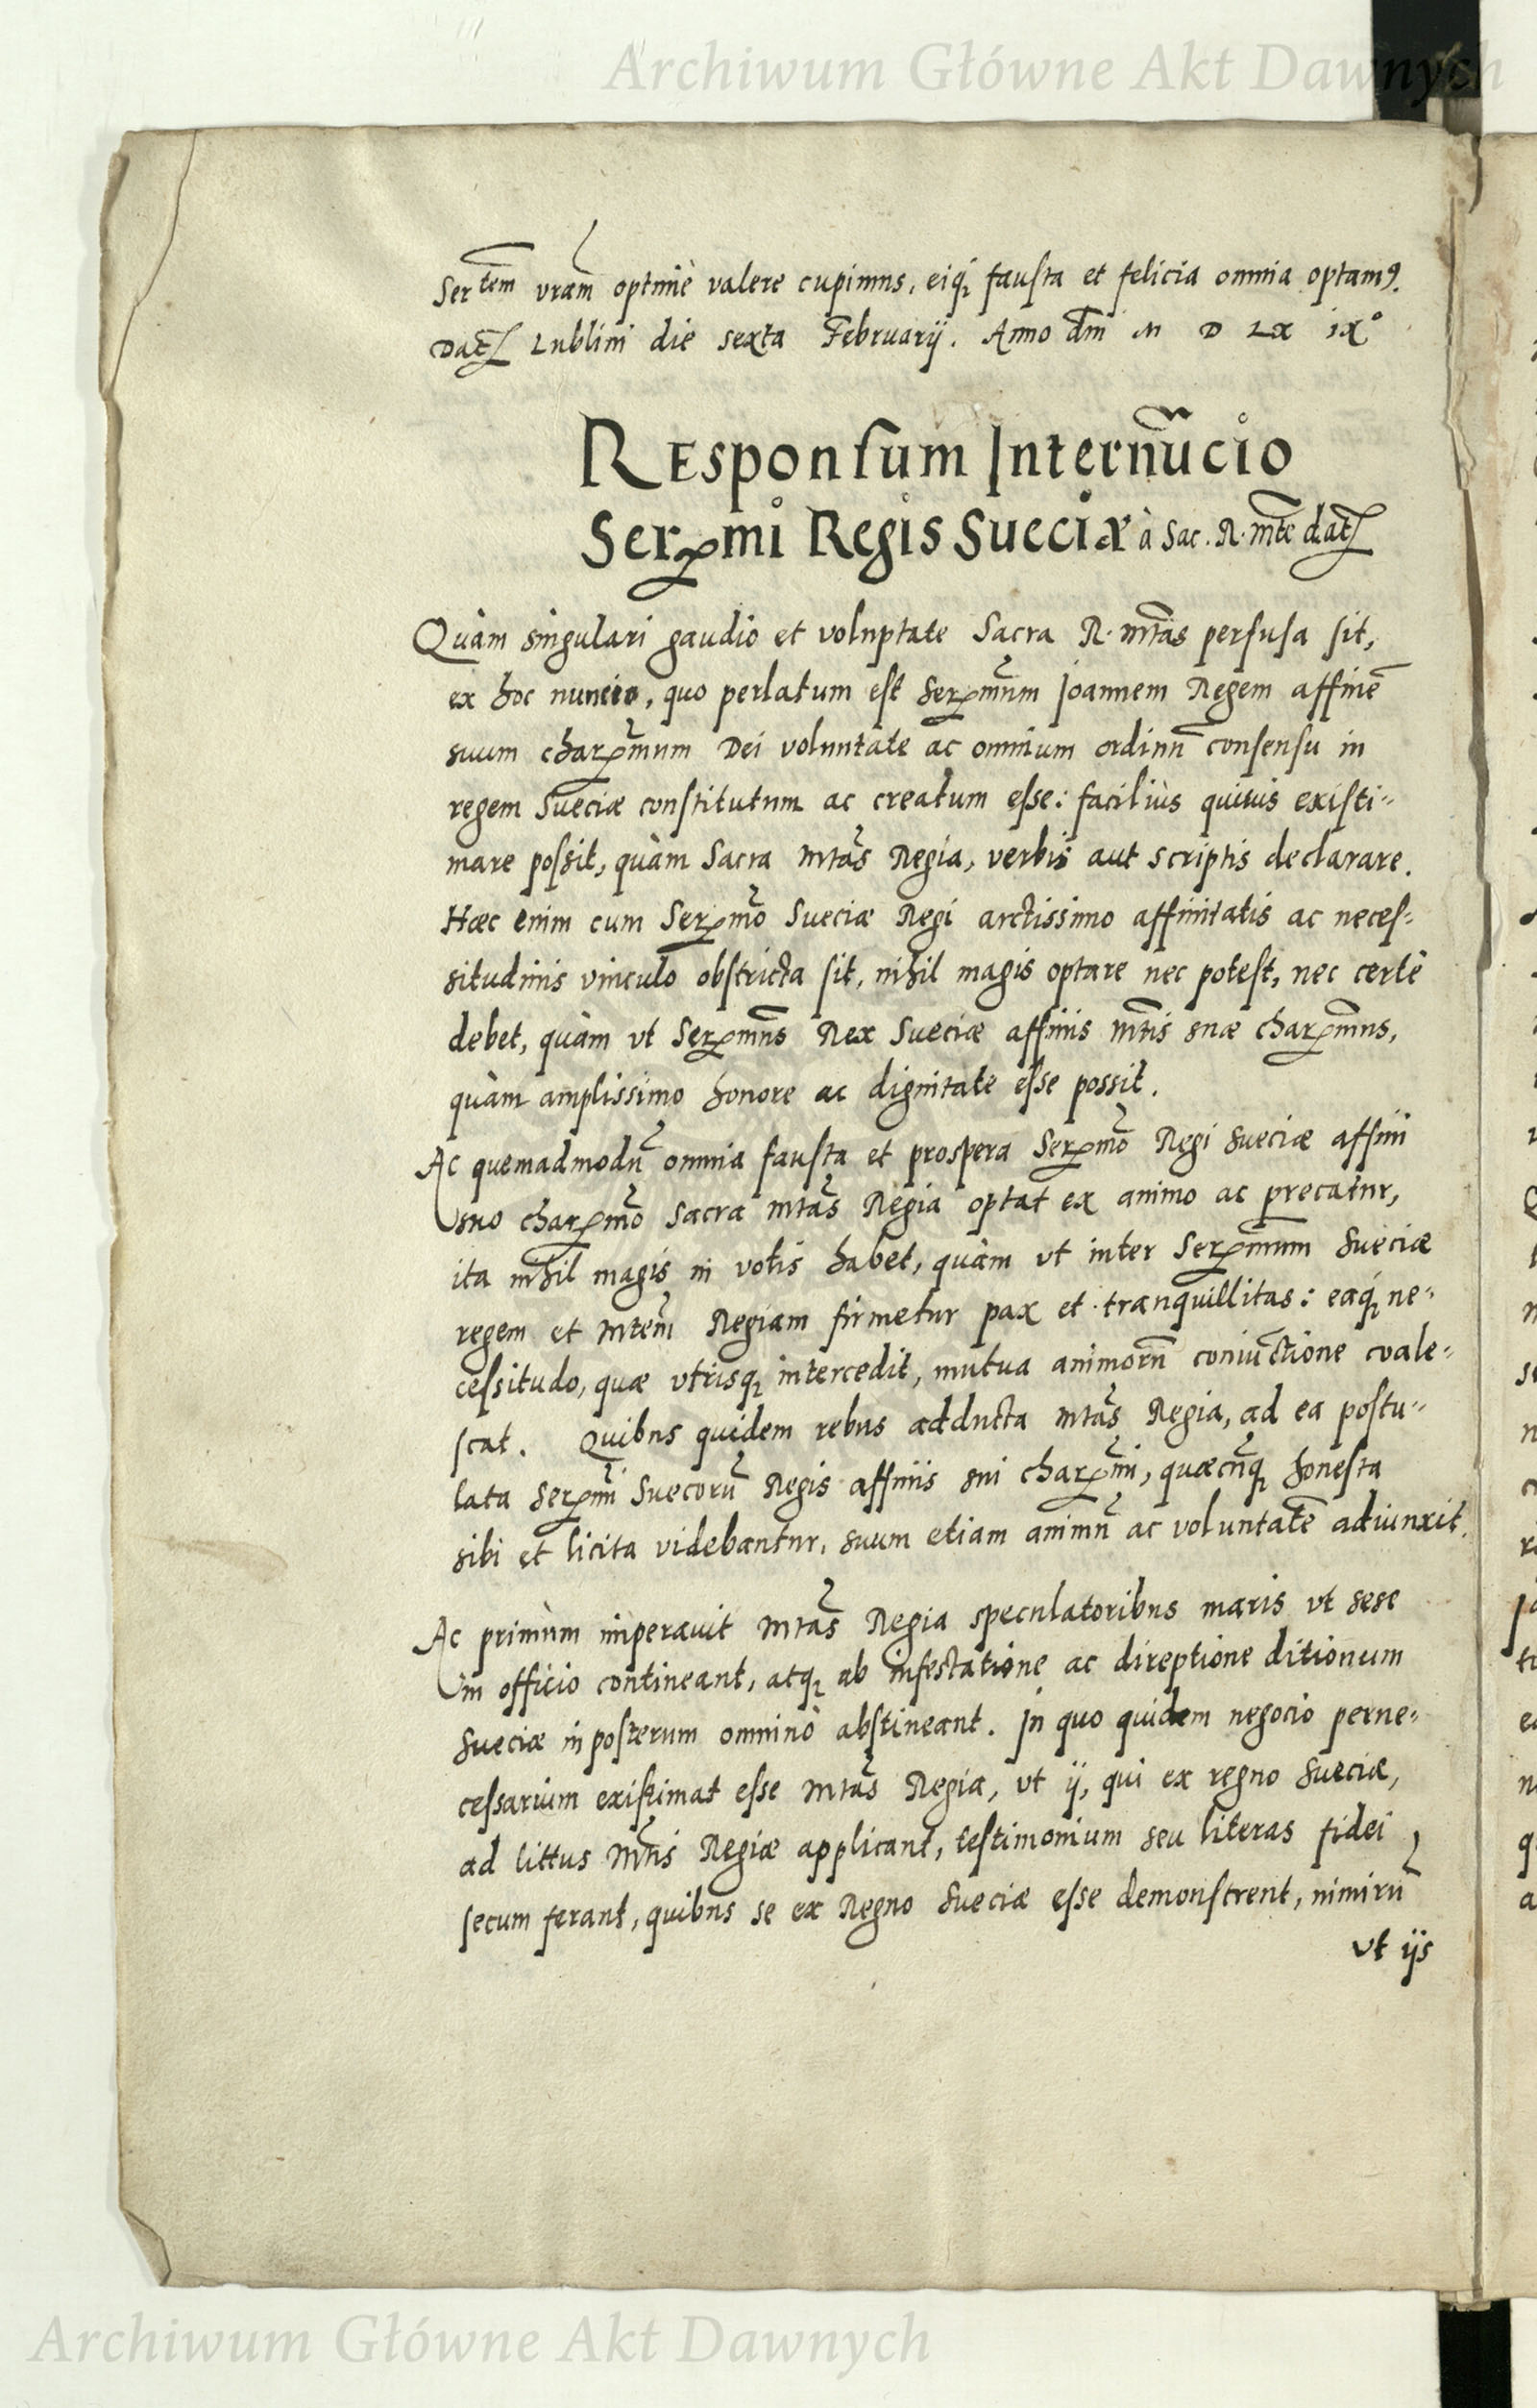 Archiwum Główne Akt Dawnych
Sertem vram optimè valere cupimus, eiq; fausta et felicia omnia optam9.
Dat Lublini die sexta Februarij. Anno dni M D LX ix°
Responsum Internucio
Sermi Regis Sueciæ à Sac. R. Mte dat
Quàm singulari gaudio et voluptate Sacra R. Mtas perfusa sit,
ex hoc nuncio, quo perlatum est Sermum Joannem Regem affinē
suum charmum Dei voluntate ac omnium ordinū consensu in
regem Sueciæ constitutum ac creatum esse: faciliùs quiuis existi-
mare possit, quàm Sacra Mtas Regia, verbis aut scriptis declarare.
Hæc enim cum Sermo Sueciæ Regi arctissimo affinitatis ac neces-
situdinis vinculo obstricta sit, nihil magis optare nec potest, nec certè
debet, quàm vt Sermus Rex Sueciæ affinis Mtis suæ charmus,
quàm amplissimo honore ac dignitate esse possit.
Ac quemadmodū omnia fausta et prospera Sermo Regi Sueciæ affini
suo charmo Sacra Mtas Regia optat ex animo ac precatur,
ita nihil magis in votis habet, quàm vt inter Sermum Sueciæ
regem et Mtem Regiam firmetur pax et tranquillitas: eaq; ne-
cessitudo, quæ vtrisq; intercedit, mutua animorū coniūctione coale-
scat. Quibus quidem rebus adducta Mtas Regia, ad ea postu-
lata Sermi Suecorū Regis affinis sui charmi, quæcūq; honesta
sibi et licita videbantur, suum etiam animū ac voluntatē adiunxit.
Ac primùm imperauit Mtas Regia speculatoribus maris vt sese
in officio contineant, atq; ab infestatione ac direptione ditionum
Sueciæ in posterum omninò abstineant. In quo quidem negocio perne-
cessarium existimat esse Mtas Regia, vt ij, qui ex regno Sueciæ,
ad littus Mtis Regiæ applicant, testimonium seu literas fidei
secum ferant, quibus se ex Regno Sueciæ esse demonstrent, nimirū
vt ijs
Archiwum Główne Akt Dawnych